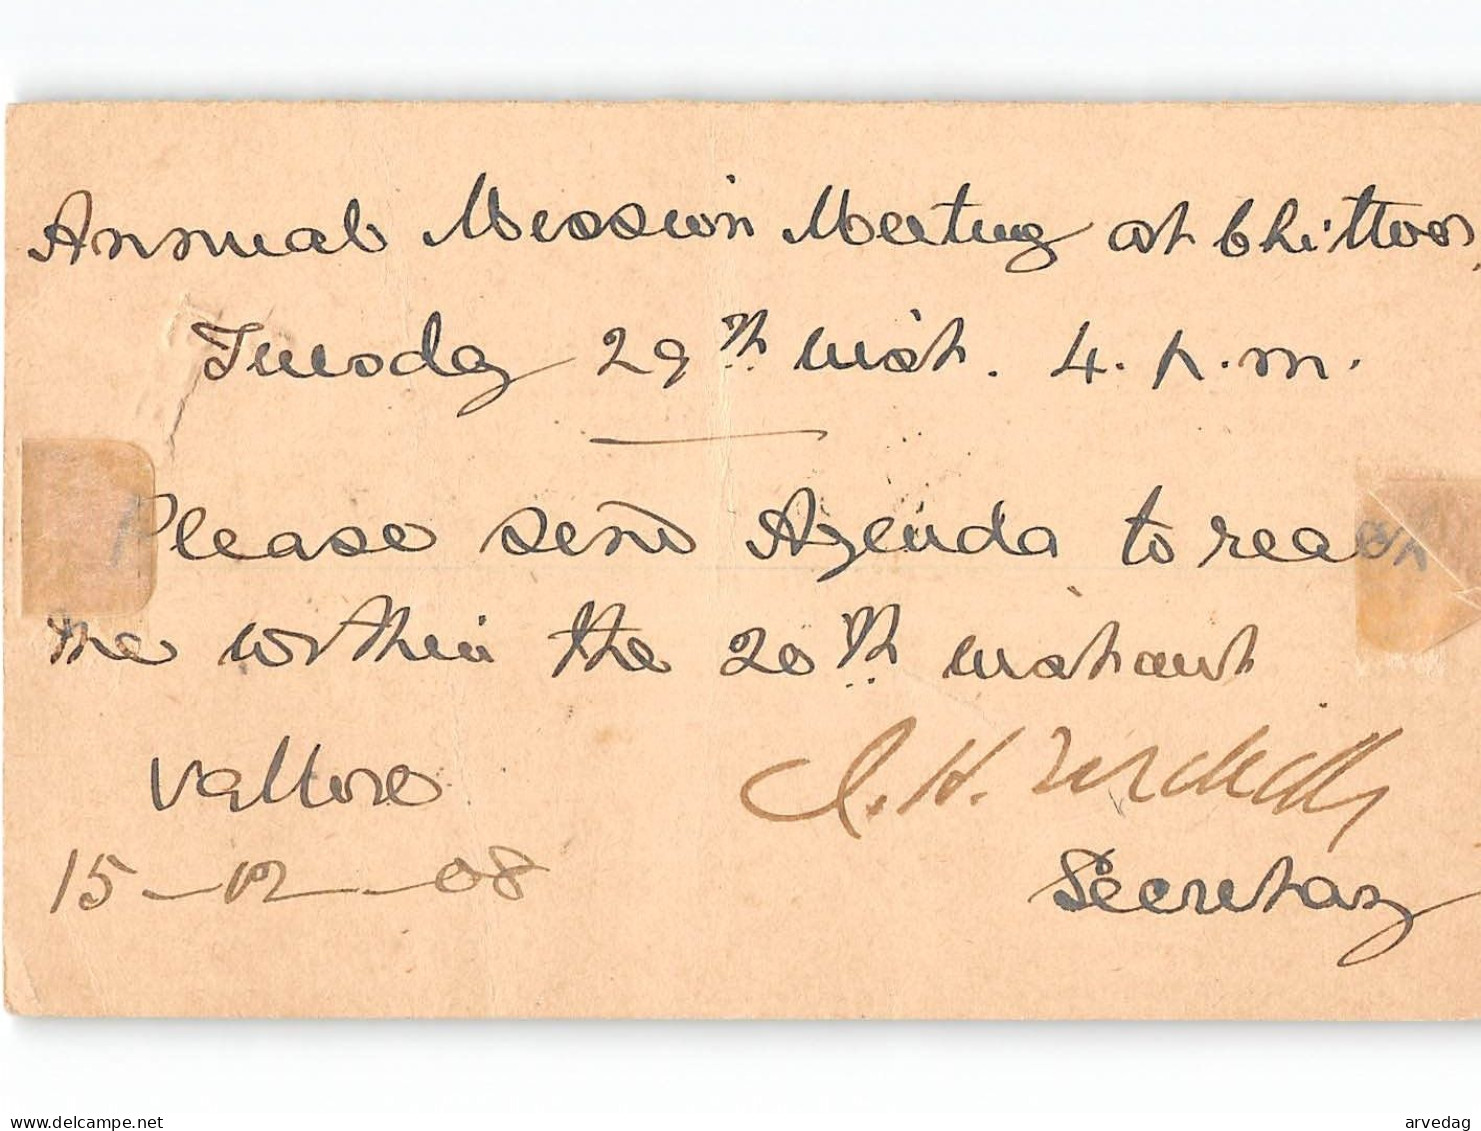 Annual Mission Meeting at Chittoor
Tuesday 29th inst. 4. p.m.
Please send Agenda to reach
me within the 20th instant
Vellore
15-12-08
H.
Secretary
delcampe.net
arvedag